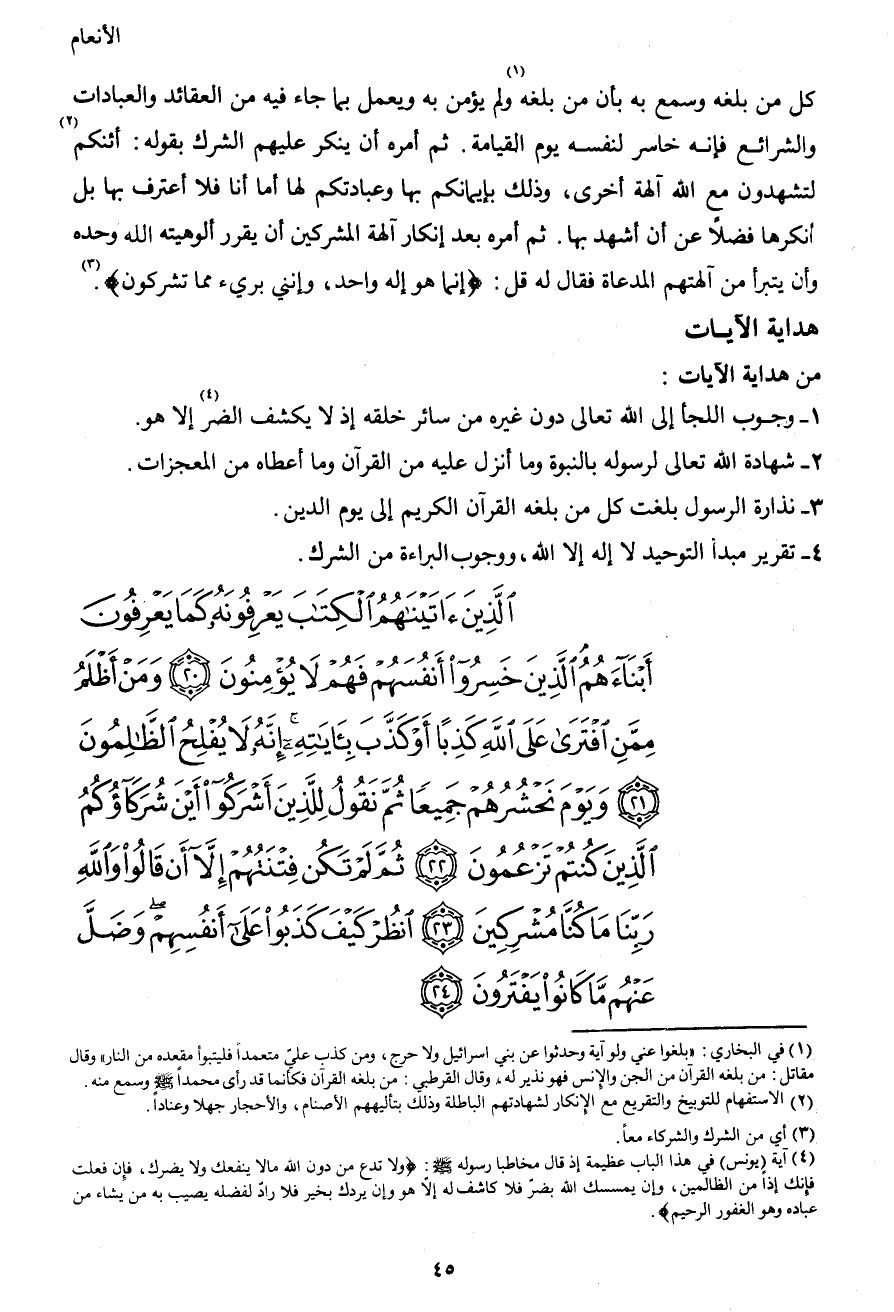 الأنعام
كل من بلغه وسمع به بأن من بلغه(١) ولم يؤمن به ويعمل بما جاء فيه من العقائد والعبادات
والشرائـع فإنـه خاسر لنفسـه يوم القيامة. ثم أمره أن ينكر عليهم الشرك بقوله: أئنكم(٢)
لتشهدون مع الله آلهة أخرى، وذلك بإيمانكم بها وعبادتكم لها أما أنا فلا أعترف بها بل
أنكرها فضلاً عن أن أشهد بها. ثم أمره بعد إنكار آلهة المشركين أن يقرر ألوهيته الله وحده
وأن يتبرأ من آلهتهم المدعاة فقال له قل: ﴿إنما هو إله واحد، وإنني بريء مما تشركون﴾.(٣)
هداية الآيـات
من هداية الآيات :
١ـ وجـوب اللجأ إلى الله تعالى دون غيره من سائر خلقه إذ لا يكشف الضر(٤) إلا هو.
٢ـ شهادة الله تعالى لرسوله بالنبوة وما أنزل عليه من القرآن وما أعطاه من المعجزات.
٣ـ نذارة الرسول بلغت كل من بلغه القرآن الكريم إلى يوم الدين.
٤ـ تقرير مبدأ التوحيد لا إله إلا الله، ووجوب البراءة من الشرك.
ٱلَّذِينَ ءَاتَيْنَٰهُمُ ٱلْكِتَٰبَ يَعْرِفُونَهُۥ كَمَا يَعْرِفُونَ
أَبْنَآءَهُمُ ٱلَّذِينَ خَسِرُوٓا۟ أَنفُسَهُمْ فَهُمْ لَا يُؤْمِنُونَ ﴿٢٠﴾ وَمَنْ أَظْلَمُ
مِمَّنِ ٱفْتَرَىٰ عَلَى ٱللَّهِ كَذِبًا أَوْ كَذَّبَ بِـَٔايَٰتِهِۦٓ ۗ إِنَّهُۥ لَا يُفْلِحُ ٱلظَّٰلِمُونَ
﴿٢١﴾ وَيَوْمَ نَحْشُرُهُمْ جَمِيعًا ثُمَّ نَقُولُ لِلَّذِينَ أَشْرَكُوٓا۟ أَيْنَ شُرَكَآؤُكُمُ
ٱلَّذِينَ كُنتُمْ تَزْعُمُونَ ﴿٢٢﴾ ثُمَّ لَمْ تَكُن فِتْنَتُهُمْ إِلَّآ أَن قَالُوا۟ وَٱللَّهِ
رَبِّنَا مَا كُنَّا مُشْرِكِينَ ﴿٢٣﴾ ٱنظُرْ كَيْفَ كَذَبُوا۟ عَلَىٰٓ أَنفُسِهِمْ ۖ وَضَلَّ
عَنْهُم مَّا كَانُوا۟ يَفْتَرُونَ ﴿٢٤﴾
(١) في البخاري: «بلغوا عني ولو آية وحدثوا عن بني اسرائيل ولا حرج، ومن كذب عليّ متعمداً فليتبوأ مقعده من النار» وقال
مقاتل: من بلغه القرآن من الجن والإنس فهو نذير له، وقال القرطبي: من بلغه القرآن فكأنما قد رأى محمداً ﷺ وسمع منه.
(٢) الاستفهام للتوبيخ والتقريع مع الإنكار لشهادتهم الباطلة وذلك بتأليههم الأصنام، والأحجار جهلا وعناداً.
(٣) أي من الشرك والشركاء معاً.
(٤) آية (يونس) في هذا الباب عظيمة إذ قال مخاطبا رسوله ﷺ: ﴿ولا تدع من دون الله مالا ينفعك ولا يضرك، فإن فعلت
فإنك إذاً من الظالمين، وإن يمسسك الله بضرّ فلا كاشف له إلّا هو وإن يردك بخير فلا رادّ لفضله يصيب به من يشاء من
عباده وهو الغفور الرحيم﴾.
٤٥